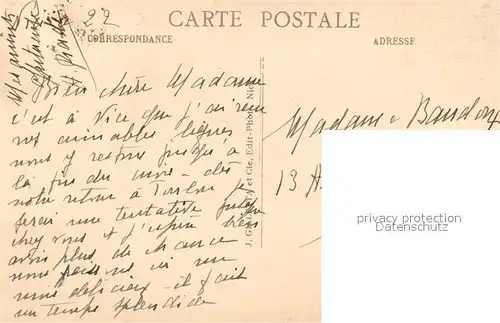 CARTE POSTALE
CORRESPONDANCE
ADRESSE
22
Bien chère Madame
c'est à Nice que j'ai reçu
vos aimables lignes
nous y restons jusqu'à
la fin du mois - dès
notre retour à Toulon je
ferai une tentative
chez vous et j'espère bien
avoir plus de chance
nous passons ici un
mois délicieux - il fait
un temps splendide
J. et Cie, Edit-Phot Nice
Madame Baudoux
13
privacy protection
www.delcampe.net